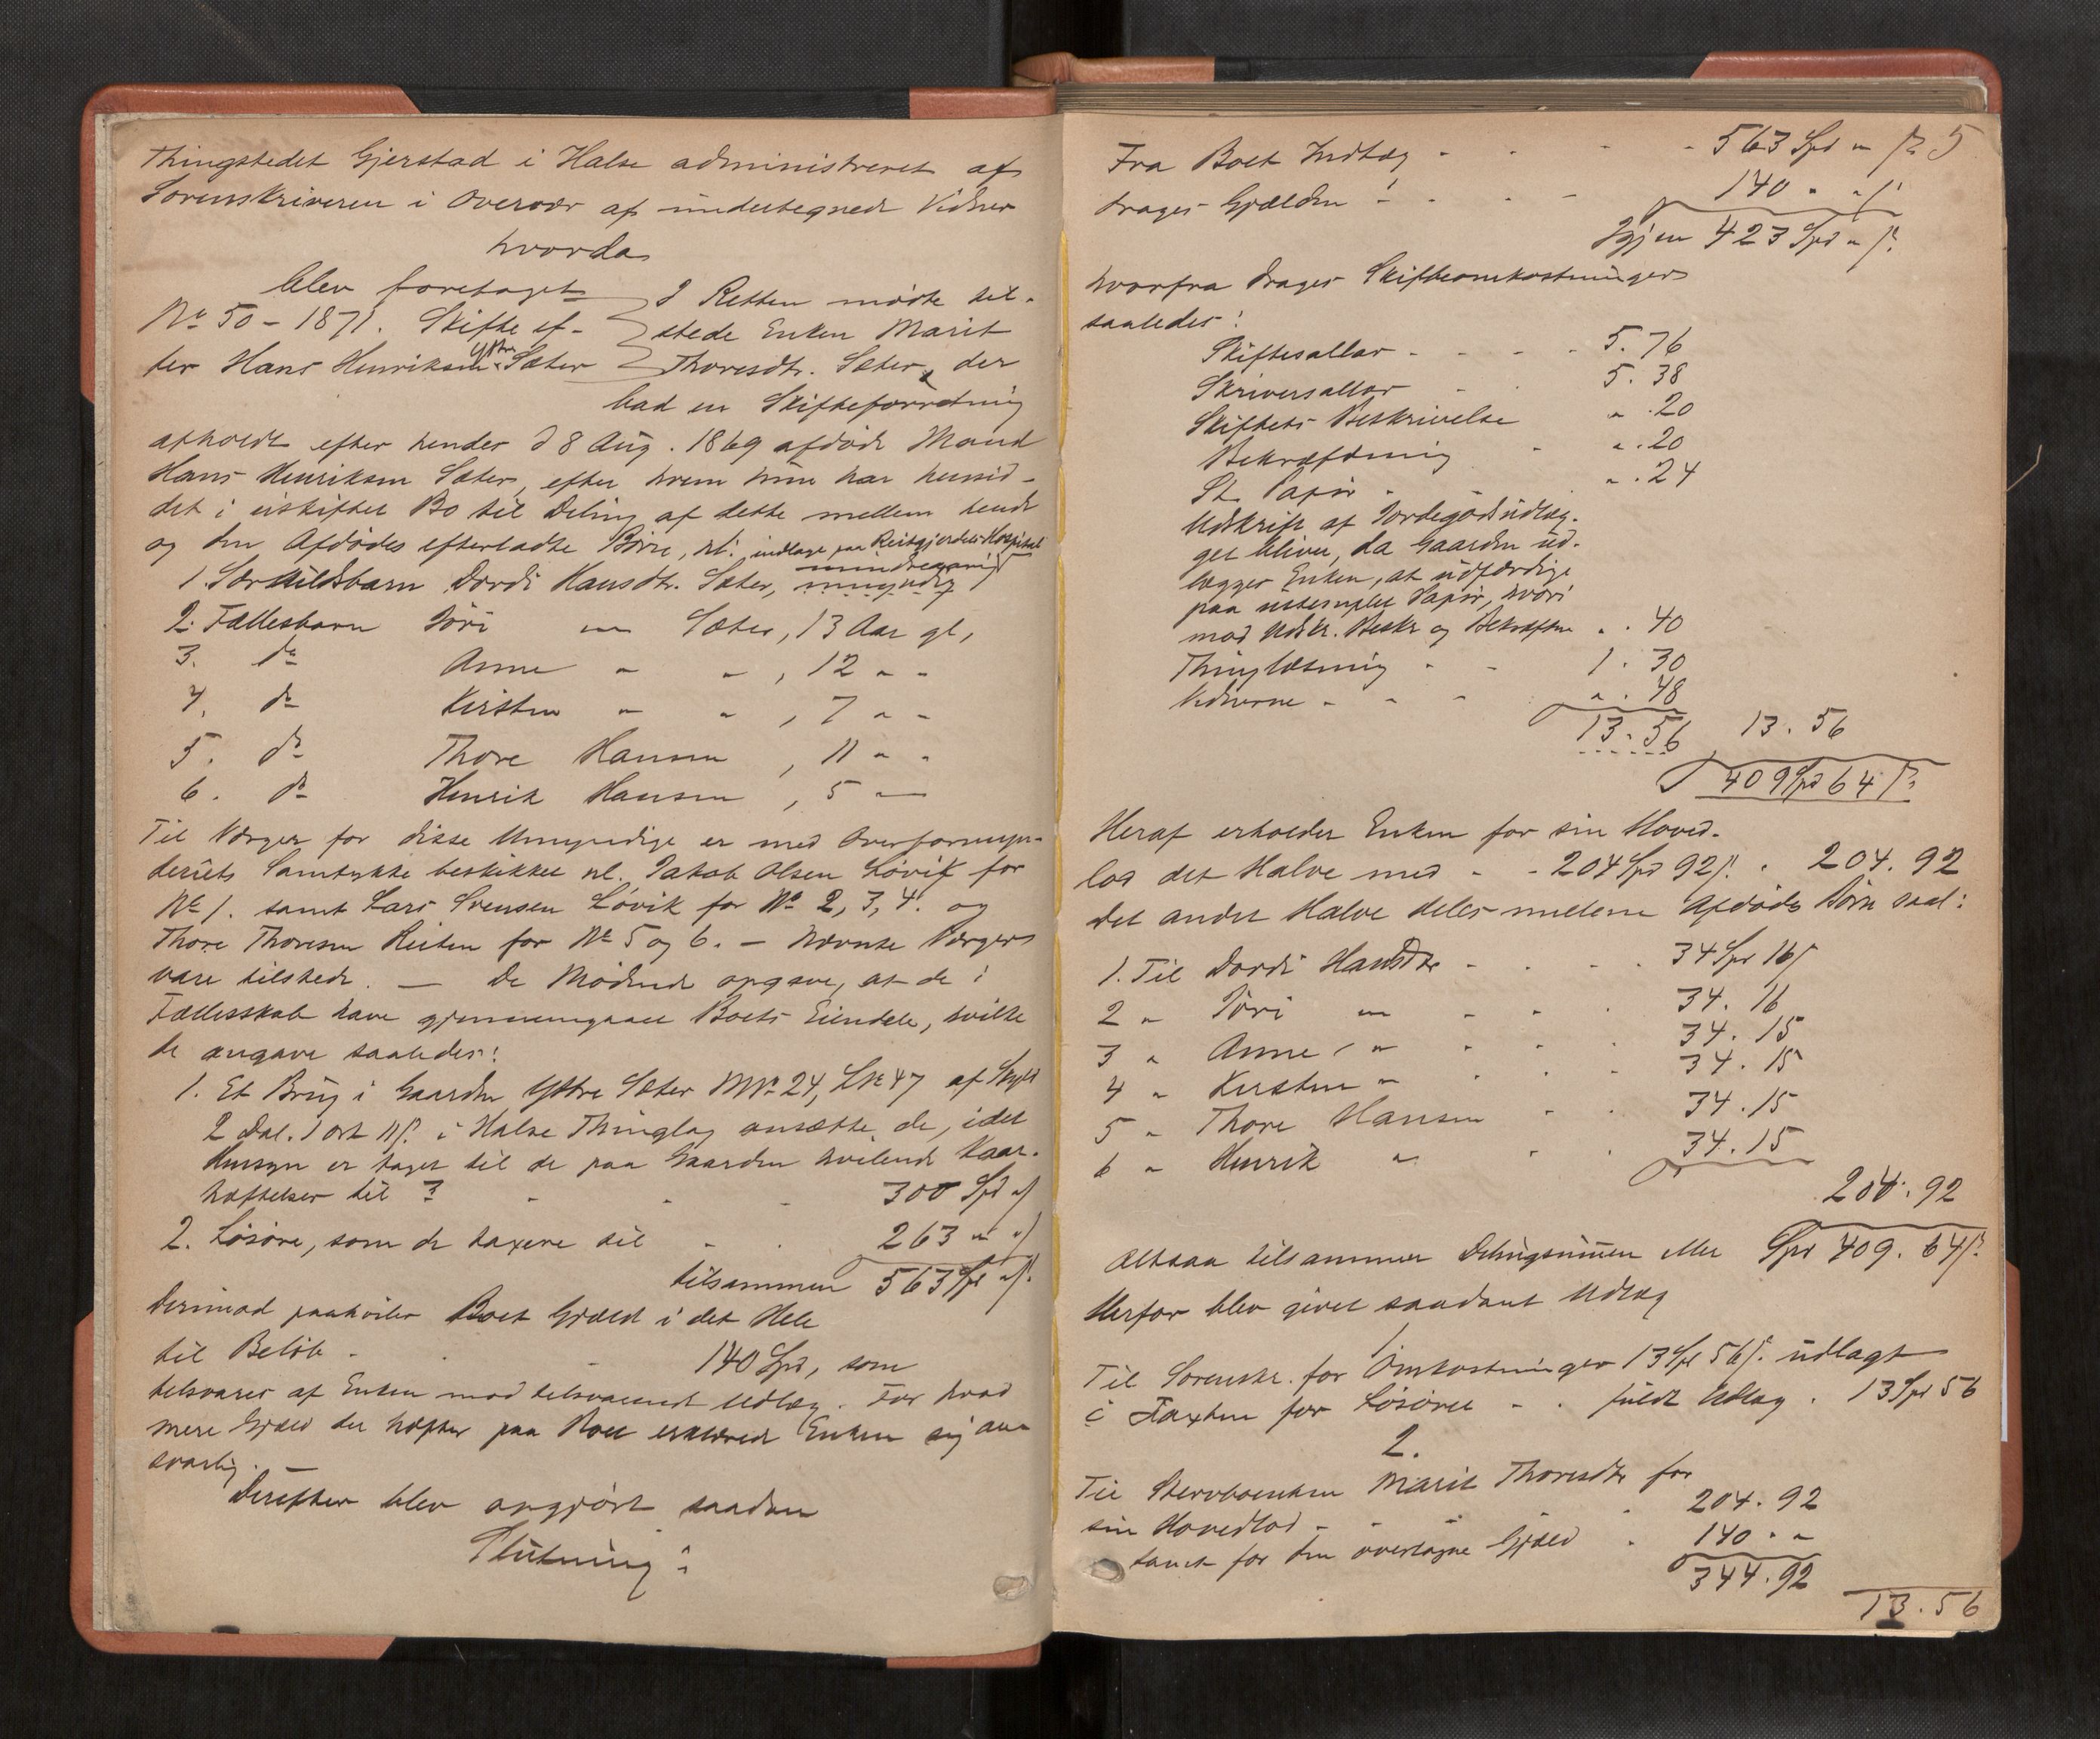 Thingstedet Gjerstad i Halse administreret af
Sorenskriveren i Overvær af undertegnede Vidner
hvorda
blev foretaget
No 50 - 1871. Skifte ef-
ter Hans Henriksen Yttre Sæter
I Retten mødte til-
stede Enken Marit
Thoresdtr. Sæter, der
bad en Skifteforretning
afholdt efter hendes d 8 Aug. 1869 afdøde Mand
Hans Henriksen Sæter, efter hvem hun har hensid-
det i uskiftet Bo til Deling af dette mellem hende
og den Afdødes efterladte Børn, nl: indlagt paa Reitgjerdets Hospital
1. Særkildbarn Dordi Hansdtr. Sæter, mindreaarig umyndig
2. Fællesbarn Jöri " Sæter, 13 Aar gl,
3. do Anne " " , 12 " "
4. do Kirsten " " , 7 " "
5. do Thore Hansen , 11 " "
6. do Henrik Hansen , 5 "
Til Værger for disse Umyndige er med Overformyn-
deriets Samtykke beskikket nl. Jakob Olsen Løvik for
No 1. samt Lars Svensen Løvik for No 2, 3, 4. og
Thore Thoresen Reiten for No 5 og 6. — Nævnte Værger
vare tilstede. — De Mødende opgave, at de i
Fællesskab have gjennemgaaet Boets Eiendele, hvilke
de angave saaledes:
1. Et Brug i Gaarden Yttre Sæter MNo 24, LNo 47 af Skyld
2 Dal. 1 Ort 11 s. i Halse Thinglag ansætte de, idet
Hensyn er taget til de paa Gaarden hvilende Kaar-
hæftelser til 300 Spd "
2. Løsøre, som de taxere til 263 " "
tilsammen 563 Spd " s.
Derimod paahviler Boet Gjæld i det Hele
til Beløb - 140 Spd, som
tilsvares af Enken mod tilsvarende Udlæg. For hvad
mere Gjæld der hæfter paa Boet erklærede Enken sig an-
svarlig.
Derefter blev opgjört saadan
Slutning:
5
Fra Boets Indtæg - 563 Spd " s
drages Gjælden - 140 " "
Igjen 423 Spd " s.
hvorfra drages Skifteomkostninger
saaledes:
Skiftesallar - 5. 76
Skriversallar - 5. 38
Skiftets Beskrivelse " . 20
Bekræftning - " . 20
St. Papir - " . 24
Udskrift af Jordegodsudlæg-
get bliver, da Gaarden ud-
lægges Enken, at udfærdige
paa ustemplet Papir, hvori
mod Udskr. Beskr og Bekræftn " . 40
Thinglæsning - 1. 30
Vidnerne - " . 48
13. 56 13. 56
409 Spd 64 s
Heraf erholder Enken for sin Hoved-
lod det Halve med - 204 Spd 92 s. 204. 92
det andet Halve deles mellem Afdødes Børn saal:
1. Til Dordi Hansdtr - 34 Spd 16 s
2 " Jöri " - 34. 16
3 " Anne " - 34. 15
4 " Kirsten " - 34. 15
5 " Thore Hansen - 34. 15
6 " Henrik " - 34. 15
204. 92
altsaa tilsammen Delingsummen eller Spd 409. 64 s.
Herfor blev givet saadant Udlæg
1.
Til Sorenskr. for Omkostninger 13 Spd 56 s. udlagt
i Taxten for Løsøret - fuldt Udlæg. 13 Spd 56
2.
Til Stervboenken Marit Thoresdtr for
sin Hovedlod - 204. 92
samt for den overtagne Gjæld - 140 " "
344. 92
13. 56